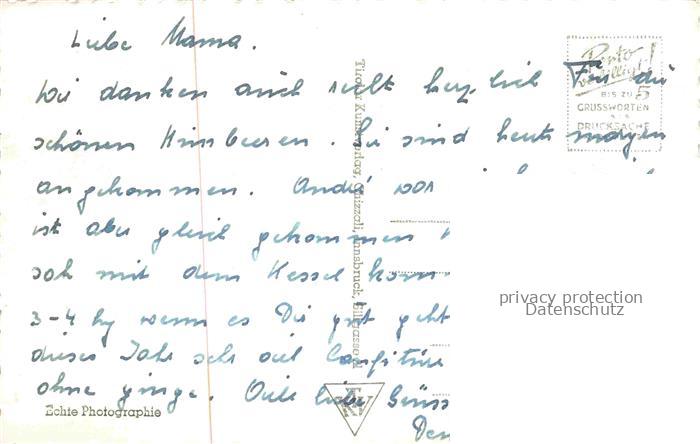 Liebe Mama.
Wir danken auch recht herzlich Für die
schönen Himbeeren. Sie sind heute morgen
angekommen. André
ist aber gleich gekommen
mit dem Kessel kom
3-4 kg wenn es Dir gut geht
dieses Jahr sehr viel Confitüre
ohne ginge. Viele liebe Grüss
Dein
Echte Photographie
Tiroler Kunstverlag Chizzali, Innsbruck,
Porto
BIS ZU 5
GRUSSWORTEN
ALS
DRUCKSACHE
privacy protection
Datenschutz